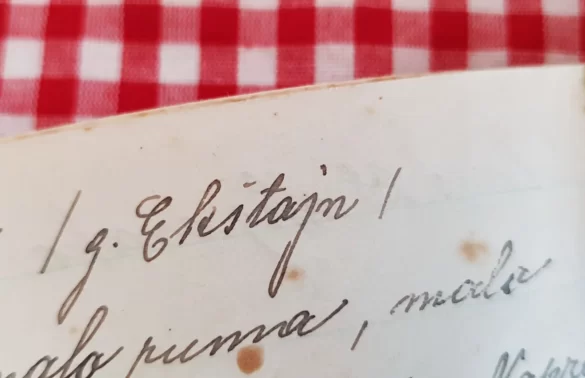 / g. Ekštajn /
malo ruma, malo